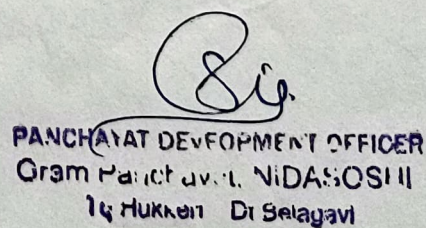 PANCHAYAT DEVFOPMENT OFFICER
Gram Panchayat, NIDASOSHI
Tq Hukkeri Dt Belagavi